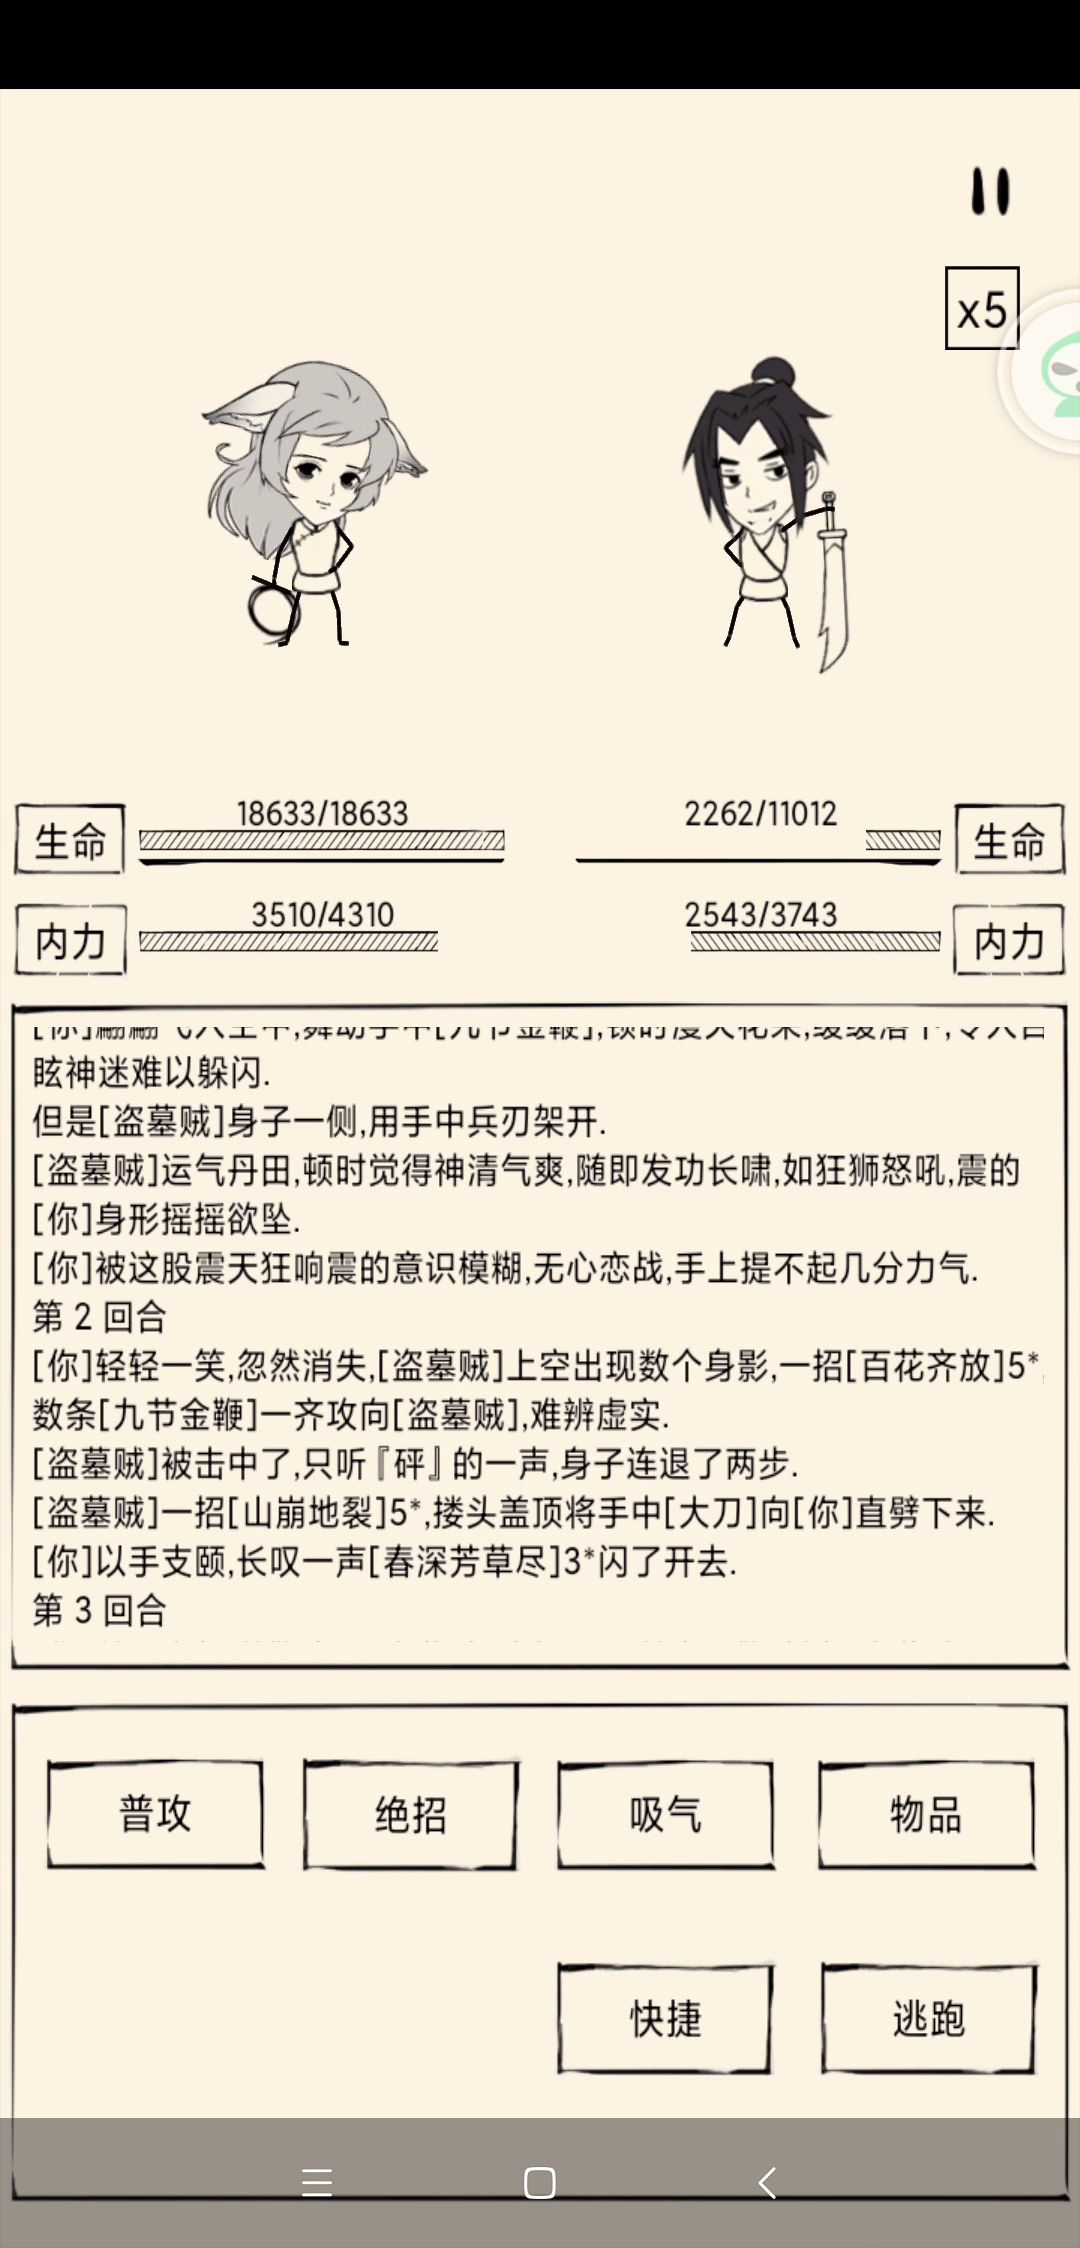 x5
18633/18633
2262/11012
生命
生命
3510/4310
2543/3743
内力
内力
眩神迷难以躲闪.
但是[盗墓贼]身子一侧,用手中兵刃架开.
[盗墓贼]运气丹田,顿时觉得神清气爽,随即发功长啸,如狂狮怒吼,震的
[你]身形摇摇欲坠.
[你]被这股震天狂响震的意识模糊,无心恋战,手上提不起几分力气.
第 2 回合
[你]轻轻一笑,忽然消失,[盗墓贼]上空出现数个身影,一招[百花齐放]5*,
数条[九节金鞭]一齐攻向[盗墓贼],难辨虚实.
[盗墓贼]被击中了,只听『砰』的一声,身子连退了两步.
[盗墓贼]一招[山崩地裂]5*,搂头盖顶将手中[大刀]向[你]直劈下来.
[你]以手支颐,长叹一声[春深芳草尽]3*闪了开去.
第 3 回合
普攻
绝招
吸气
物品
快捷
逃跑